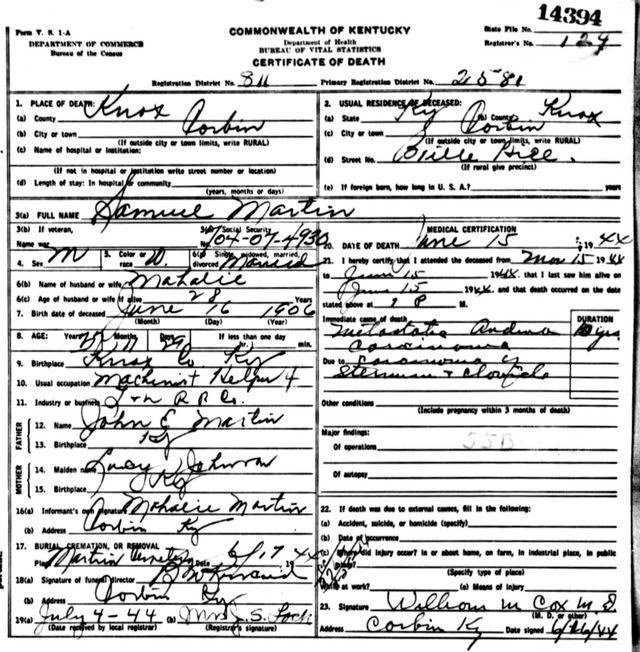 14394
Form V. S. 1-A
COMMONWEALTH OF KENTUCKY
State File No.
DEPARTMENT OF COMMERCE
Department of Health
Registrar's No. 129
Bureau of the Census
BUREAU OF VITAL STATISTICS
CERTIFICATE OF DEATH
Registration District No. 811 Primary Registration District No. 2581
1. PLACE OF DEATH:
(a) County Knox
(b) City or town Corbin
(If outside city or town limits, write RURAL)
(c) Name of hospital or institution:
(If not in hospital or institution write street number or location)
(d) Length of stay: In hospital or community
(years, months or days)
2. USUAL RESIDENCE OF DECEASED:
(a) State Ky (b) County Knox
(c) City or town Corbin
(If outside city or town limits, write RURAL)
(d) Street No.
(If rural give precinct)
(e) If foreign born, how long in U. S. A.? years
3(a) FULL NAME Samuel Martin
3(b) If veteran, name war
3(c) Social Security No. 704-07-4930
4. Sex M 5. Color or race W. 6(a) Single, widowed, married, divorced Married
6(b) Name of husband or wife Mahalie
6(c) Age of husband or wife if alive 28 Years
7. Birth date of deceased June 16 1906
(Month) (Day) (Year)
8. AGE: Years Months 11 Days 29 If less than one day hr. min.
9. Birthplace Knox Co Ky
10. Usual occupation Machinist Helper
11. Industry or business L & N R R Co.
FATHER
12. Name John E Martin
13. Birthplace Ky
MOTHER
14. Maiden name Johnson
15. Birthplace Ky
16(a) Informant's own signature Mahalie Martin
(b) Address Corbin Ky
17. BURIAL, CREMATION, OR REMOVAL
Place Martin Cemetery 6/17 1944
18(a) Signature of funeral director
(b) Address Corbin Ky
19(a) July 4-44 (b) Mrs
(Date received by local registrar) (Registrar's signature)
MEDICAL CERTIFICATION
20. DATE OF DEATH June 15 1944
21. I hereby certify that I attended the deceased from 15 1944
to June 15 1944, that I last saw him alive on
June 15 1944, and that death occurred on the date
stated above at P M.
Immediate cause of death DURATION
Metastatic
Carcinoma
Due to Carcinoma of
Sternum &
Other conditions
(Include pregnancy within 3 months of death)
Major findings:
Of operations 55B
Of autopsy
22. If death was due to external causes, fill in the following:
(a) Accident, suicide, or homicide (specify)
(b) Date of occurrence
(c) Where did injury occur? In or about home, on farm, in industrial place, in public place?
(Specify type of place)
While at work? (e) Means of injury
23. Signature William M Cox M D
(M. D. or other)
Address Corbin Ky Date signed 6/26/44